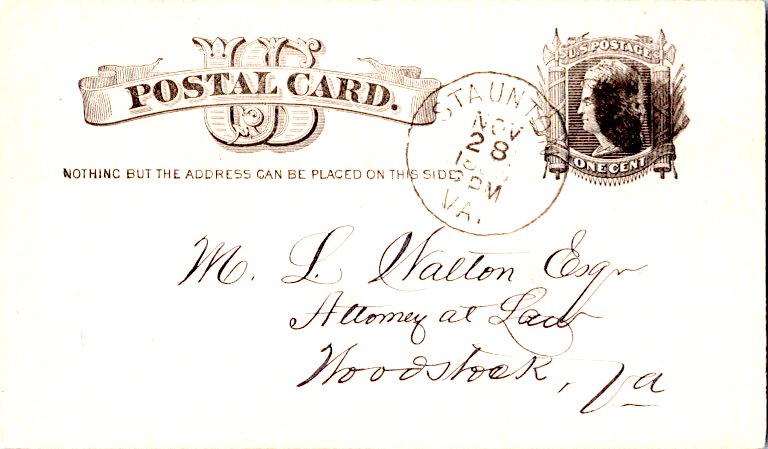 POSTAL CARD.
US
U.S. POSTAGE
ONE CENT
STAUNTON
NOV
28
PM
VA.
NOTHING BUT THE ADDRESS CAN BE PLACED ON THIS SIDE.
M. L. Walton Esqr
Attorney at Law
Woodstock, Va